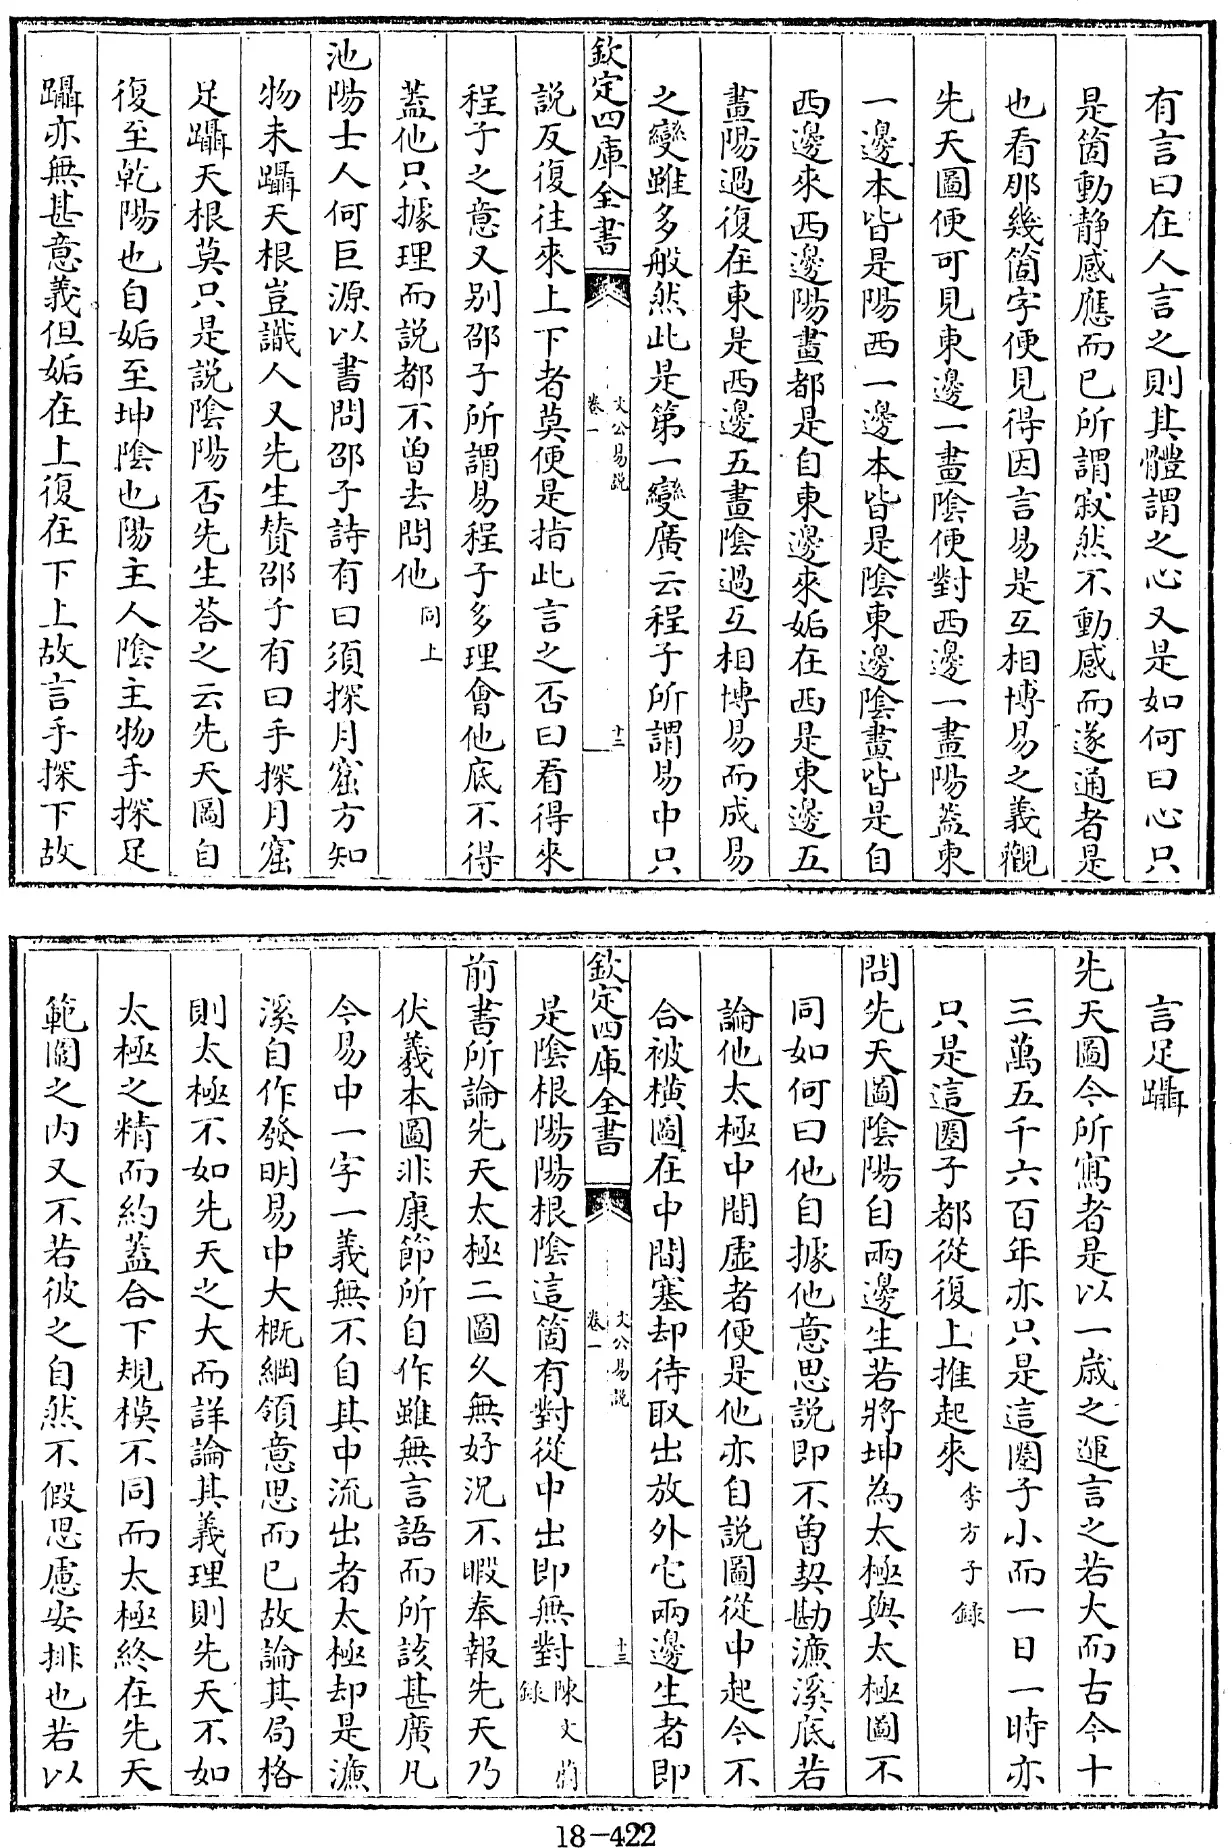 有言曰在人言之則其體謂之心又是如何曰心只
是箇動靜感應而已所謂寂然不動感而遂通者是
也看那幾箇字便見得因言易是互相博易之義觀
先天圖便可見東邊一畫陰便對西邊一畫陽蓋東
一邊本皆是陽西一邊本皆是陰東邊陰畫皆是自
西邊來西邊陽畫都是自東邊來姤在西是東邊五
畫陽過復在東是西邊五畫陰過互相博易而成易
之變雖多般然此是第一變廣云程子所謂易中只
欽定四庫全書
文公易說
卷一
十二
說反復往來上下者莫便是指此言之否曰看得來
程子之意又別邵子所謂易程子多理會他底不得
蓋他只據理而說都不曾去問他同上
池陽士人何巨源以書問邵子詩有曰須探月窟方知
物未躡天根豈識人又先生贊邵子有曰手探月窟
足躡天根莫只是說陰陽否先生荅之云先天圖自
復至乾陽也自姤至坤陰也陽主人陰主物手探足
躡亦無甚意義但姤在上復在下上故言手探下故
言足躡
先天圖今所寫者是以一歲之運言之若大而古今十
三萬五千六百年亦只是這圈子小而一日一時亦
只是這圈子都從復上推起來李方子錄
問先天圖陰陽自兩邊生若將坤為太極與太極圖不
同如何曰他自據他意思說即不曾契勘濂溪底若
論他太極中間虛者便是他亦自說圖從中起今不
合被橫圖在中間塞却待取出放外它兩邊生者即
欽定四庫全書
文公易說
卷一
十三
是陰根陽陽根陰這箇有對從中出即無對陳文蔚錄
前書所論先天太極二圖久無好況不暇奉報先天乃
伏羲本圖非康節所自作雖無言語而所該甚廣凡
今易中一字一義無不自其中流出者太極却是濂
溪自作發明易中大概綱領意思而已故論其局格
則太極不如先天之大而詳論其義理則先天不如
太極之精而約蓋合下規模不同而太極終在先天
範圍之內又不若彼之自然不假思慮安排也若以
18-422